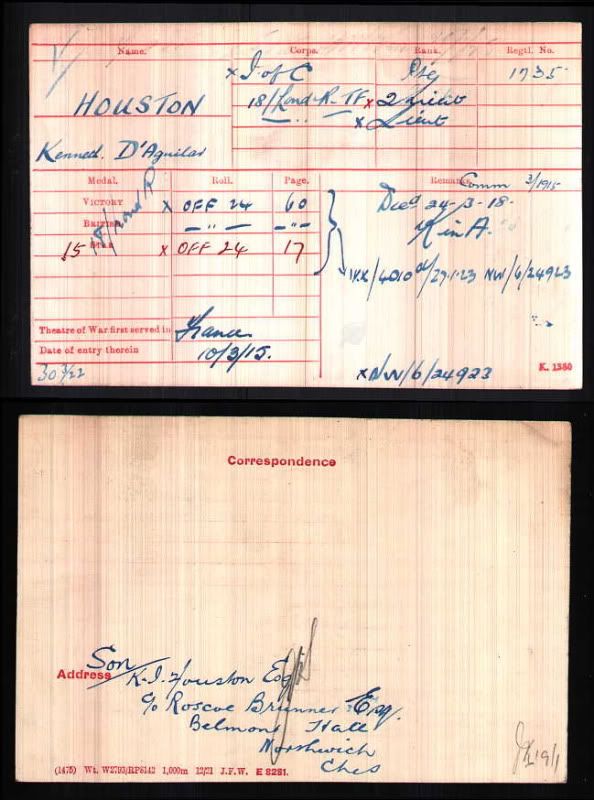 Name. Corps. Rank. Regtl. No.
x I of C Pte 1735
HOUSTON 18/Lond. R. TF x 2/Lieut
x Lieut
Kenneth D'Aguilar
Medal. Roll. Page. Remarks.
Comm 3/1915
VICTORY x OFF 24 60 Died 24-3-18.
BRITISH — " — — " — K in A.
18/Lond R
15 STAR x OFF 24 17
IVX/4010 d/27.1.23 NW/6/24923
Theatre of War first served in France
Date of entry therein 10/3/15.
K. 1380
30 3/22 xNW/6/24923
Correspondence
Son
Address K. I. Houston Esq
c/o Roscoe Brunner Esq.
Belmont Hall
Northwich
Ches
(1475) Wt. W2793/RP8142 1,000m 12/21 J.F.W. E 8281.